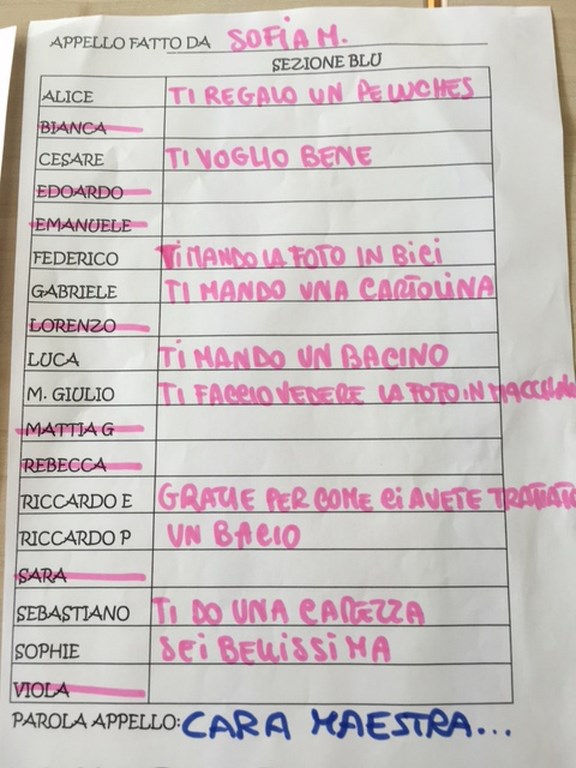 APPELLO FATTO DA SOFIA M.
SEZIONE BLU
ALICE TI REGALO UN PELUCHES
BIANCA
CESARE TI VOGLIO BENE
EDOARDO
EMANUELE
FEDERICO TI MANDO LA FOTO IN BiCi
GABRIELE TI MANDO UNA CARTOLINA
LORENZO
LUCA Ti MANDO UN BACINO
M. GIULIO TI FACCIO VEDERE LA FOTO iN
MATTIA G
REBECCA
RICCARDO E GRAZIE PER COME Ci AVETE TRATTATO
RICCARDO P UN BACIO
SARA
SEBASTIANO TI DO UNA CAREZZA
SOPHIE SEi BELLISSiMA
VIOLA
PAROLA APPELLO: CARA MAESTRA...